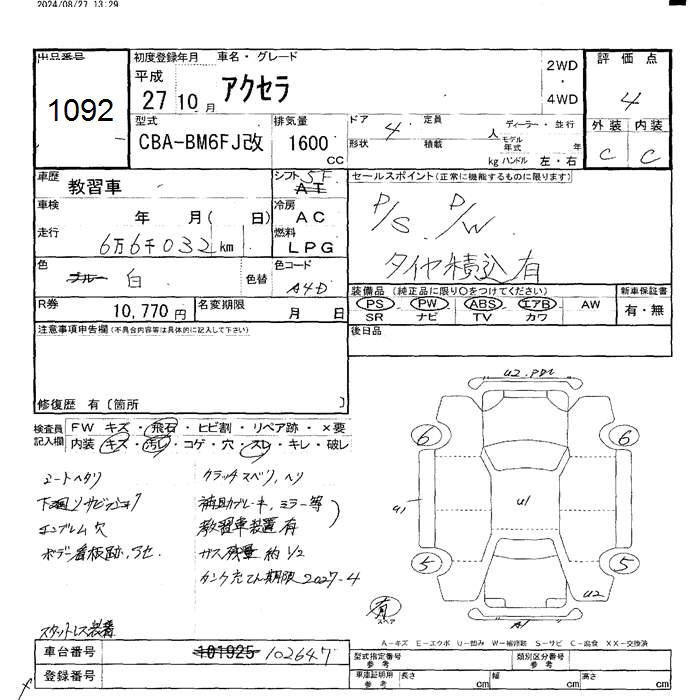 2024/08/27 13:29
出品番号
1092
初度登録年月 車名・グレード
平成
27 10月 アクセラ
2WD
・
4WD
評価点
4
外装 内装
C C
型式
CBA-BM6FJ改
排気量
1600
CC
ドア 4 定員 人
ディーラー・並行
形状 積載 kg
モデル年式 年
ハンドル 左・右
車歴
教習車
シフト 5F
AT
車検
年 月( 日)
冷房
AC
走行
6万6千032km
燃料
LPG
色
ブルー 白
色替
色コード
A4D
R券
10,770円
名変期限
月 日
セールスポイント(正常に機能するものに限ります)
P/S P/W
タイヤ積込有
装備品(純正品に限り〇をつけてください)
PS PW ABS エアB AW
SR ナビ TV カワ
新車保証書
有・無
後日品
注意事項申告欄(不具合内容等は具体的に記入して下さい)
修復歴 有〔箇所 〕
検査員
記入欄
FW キズ・飛石・ヒビ割・リペア跡・×要
内装 キズ・汚レ・コゲ・穴・スレ・キレ・破レ
シートヘタリ
下廻りサビ
エンブレム穴
ボデー看板跡、
クラッチスベリ、ヘリ
補助ブレーキ、ミラー等
教習車装置有
ガス残量 約1/2
タンク充てん期限 2027-4
スタットレス装着
U2.
6
6
A1
U1
5
5
U2
A1
有
スペア
A-キズ E-エクボ U-凹み W-補修跡 S-サビ C-腐食 XX-交換済
車台番号
101925 102647
登録番号
型式指定番号
参考
類別区分番号
参考
車庫証明用
参考
長さ cm 幅 cm 高さ cm